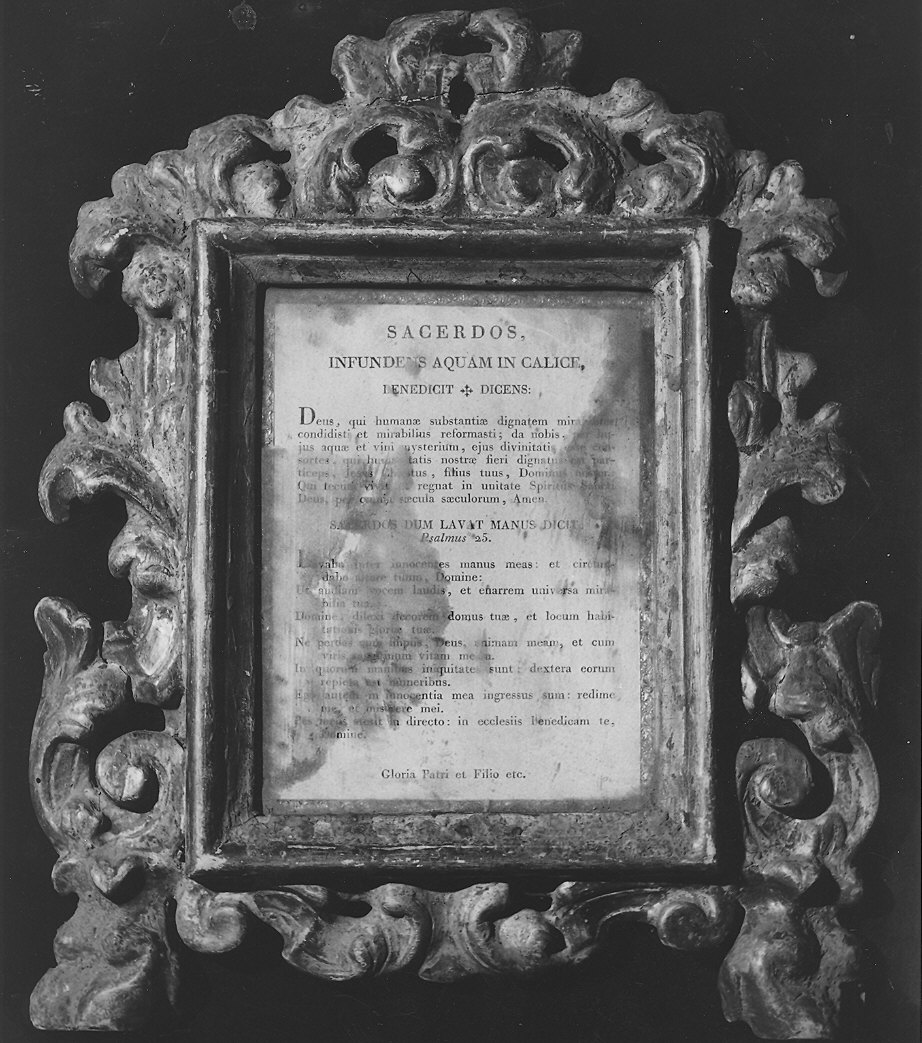 SACERDOS,
INFUNDENS AQUAM IN CALICE,
BENEDICIT ✣ DICENS:
Deus, qui humanæ substantiæ dignatem
condidisti et mirabilius reformasti; da nobis, per hu-
jus aquæ et vini mysterium, ejus divinitatis esse con-
sortes, qui humanitatis nostræ fieri dignatus est par-
ticeps, Jesus Christus, filius tuus, Dominus noster:
Qui tecum vivit et regnat in unitate Spiritus Sancti
Deus, per omnia sæcula sæculorum, Amen.
SACERDOS DUM LAVAT MANUS DICIT.
Psalmus 25.
Lavabo inter innocentes manus meas: et circum-
dabo altare tuum, Domine:
Ut audiam vocem laudis, et enarrem universa mira-
bilia tua.
Domine, dilexi decorem domus tuæ, et locum habi-
tationis gloriæ tuæ.
Ne perdas cum impiis, Deus, animam meam, et cum
viris sanguinum vitam meam.
In quorum manibus iniquitate sunt: dextera eorum
repleta est muneribus.
Ego autem in innocentia mea ingressus sum: redime
me, et miserere mei.
Pes meus stetit in directo: in ecclesiis benedicam te,
Domine.
Gloria Patri et Filio etc.